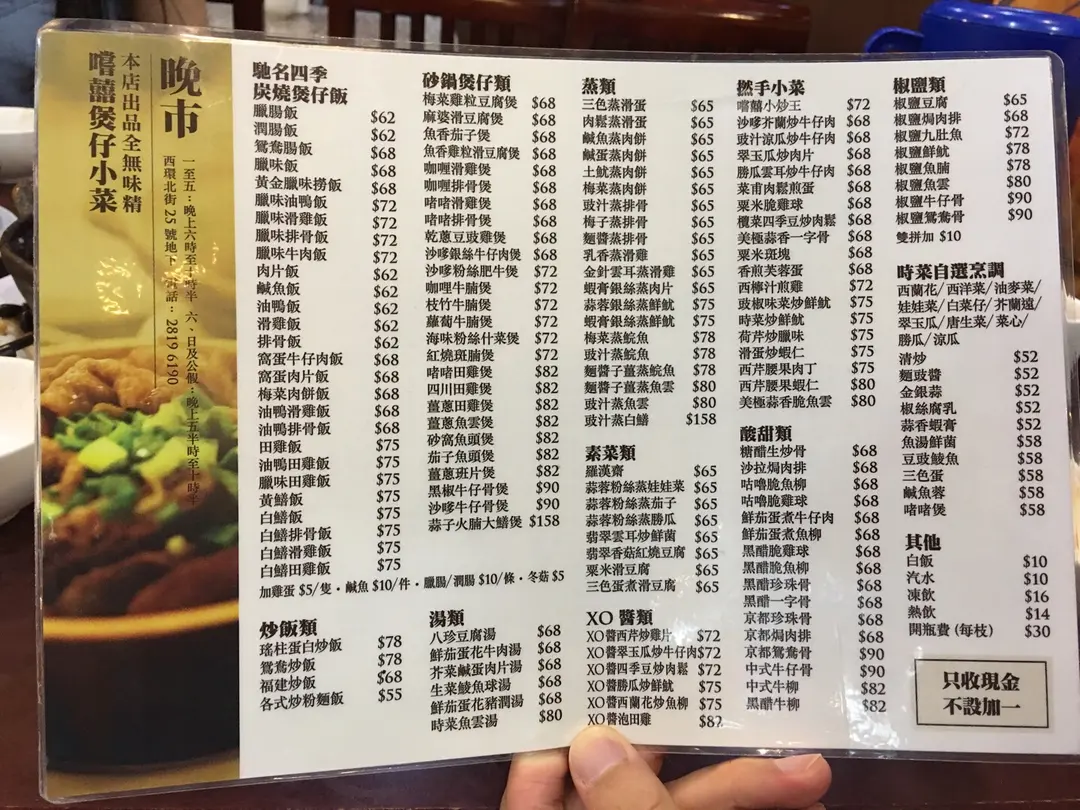 晚市
本店出品全無味精
嚐囍煲仔小菜
一至五：晚上六時至十時半 六、日及公假：晚上五半時至十時半
西環北街25號地下 電話：2819 6190
馳名四季
炭燒煲仔飯
臘腸飯 $62
潤腸飯 $62
鴛鴦腸飯 $68
臘味飯 $68
黃金臘味撈飯 $68
臘味油鴨飯 $72
臘味滑雞飯 $72
臘味排骨飯 $72
臘味牛肉飯 $72
肉片飯 $62
鹹魚飯 $62
油鴨飯 $62
滑雞飯 $62
排骨飯 $62
窩蛋牛仔肉飯 $68
窩蛋肉片飯 $68
梅菜肉餅飯 $68
油鴨滑雞飯 $68
油鴨排骨飯 $68
田雞飯 $75
油鴨田雞飯 $75
臘味田雞飯 $75
黃鱔飯 $75
白鱔飯 $75
白鱔排骨飯 $75
白鱔滑雞飯 $75
白鱔田雞飯 $75
加雞蛋 $5/隻・鹹魚 $10/件・臘腸/潤腸 $10/條・冬菇 $5
炒飯類
瑤柱蛋白炒飯 $78
鴛鴦炒飯 $78
福建炒飯 $68
各式炒粉麵飯 $55
砂鍋煲仔類
梅菜雞粒豆腐煲 $68
麻婆滑豆腐煲 $68
魚香茄子煲 $68
魚香雞粒滑豆腐煲 $68
咖喱滑雞煲 $68
咖喱排骨煲 $68
啫啫滑雞煲 $68
啫啫排骨煲 $68
乾蔥豆豉雞煲 $68
沙嗲銀絲牛仔肉煲 $68
沙嗲粉絲肥牛煲 $72
咖喱牛腩煲 $72
枝竹牛腩煲 $72
蘿蔔牛腩煲 $72
海味粉絲什菜煲 $72
紅燒斑腩煲 $72
啫啫田雞煲 $82
四川田雞煲 $82
薑蔥田雞煲 $82
薑蔥魚雲煲 $82
砂窩魚頭煲 $82
茄子魚頭煲 $82
薑蔥班片煲 $82
黑椒牛仔骨煲 $90
沙嗲牛仔骨煲 $90
蒜子火腩大鱔煲 $158
湯類
八珍豆腐湯 $68
鮮茄蛋花牛肉湯 $68
芥菜鹹蛋肉片湯 $68
生菜鯪魚球湯 $68
鮮茄蛋花豬潤湯 $68
時菜魚雲湯 $80
蒸類
三色蒸滑蛋 $65
肉鬆蒸滑蛋 $65
鹹魚蒸肉餅 $65
鹹蛋蒸肉餅 $65
土魷蒸肉餅 $65
梅菜蒸肉餅 $65
豉汁蒸排骨 $65
梅子蒸排骨 $65
麵醬蒸排骨 $65
乳香蒸滑雞 $65
金針雲耳蒸滑雞 $65
蝦膏銀絲蒸肉片 $65
蒜蓉銀絲蒸鮮魷 $75
蝦膏銀絲蒸鮮魷 $75
梅菜蒸鯇魚 $78
豉汁蒸鯇魚 $78
麵醬子薑蒸鯇魚 $78
麵醬子薑蒸魚雲 $80
豉汁蒸魚雲 $80
豉汁蒸白鱔 $158
素菜類
羅漢齋 $65
蒜蓉粉絲蒸娃娃菜 $65
蒜蓉粉絲蒸茄子 $65
蒜蓉粉絲蒸勝瓜 $65
翡翠雲耳炒鮮菌 $65
翡翠香菇紅燒豆腐 $65
粟米滑豆腐 $65
三色蛋煮滑豆腐 $65
XO 醬類
XO醬西芹炒雞片 $72
XO醬翠玉瓜炒牛仔肉 $72
XO醬四季豆炒肉鬆 $72
XO醬勝瓜炒鮮魷 $75
XO醬西蘭花炒魚柳 $75
XO醬泡田雞 $82
撚手小菜
嚐囍小炒王 $72
沙嗲芥蘭炒牛仔肉 $68
豉汁涼瓜炒牛仔肉 $68
翠玉瓜炒肉片 $68
勝瓜雲耳炒牛仔肉 $68
菜甫肉鬆煎蛋 $68
粟米脆雞球 $68
欖菜四季豆炒肉鬆 $68
美極蒜香一字骨 $68
粟米斑塊 $68
香煎芙蓉蛋 $68
西檸汁煎雞 $72
豉椒味菜炒鮮魷 $75
時菜炒鮮魷 $75
荷芹炒臘味 $75
滑蛋炒蝦仁 $75
西芹腰果肉丁 $75
西芹腰果蝦仁 $80
美極蒜香脆魚雲 $80
酸甜類
糖醋生炒骨 $68
沙拉焗肉排 $68
咕嚕脆魚柳 $68
咕嚕脆雞球 $68
鮮茄蛋煮牛仔肉 $68
鮮茄蛋煮魚柳 $68
黑醋脆雞球 $68
黑醋脆魚柳 $68
黑醋珍珠骨 $68
黑醋一字骨 $68
京都珍珠骨 $68
京都焗肉排 $68
京都鴛鴦骨 $90
中式牛仔骨 $90
中式牛柳 $82
黑醋牛柳 $82
椒鹽類
椒鹽豆腐 $65
椒鹽焗肉排 $68
椒鹽九肚魚 $72
椒鹽鮮魷 $78
椒鹽魚腩 $78
椒鹽魚雲 $80
椒鹽牛仔骨 $90
椒鹽鴛鴦骨 $90
雙拼加 $10
時菜自選烹調
西蘭花/西洋菜/油麥菜/
娃娃菜/白菜仔/芥蘭遠/
翠玉瓜/唐生菜/菜心/
勝瓜/涼瓜
清炒 $52
麵豉醬 $52
金銀蒜 $52
椒絲腐乳 $52
蒜香蝦膏 $52
魚湯鮮菌 $58
豆豉鯪魚 $58
三色蛋 $58
鹹魚蓉 $58
啫啫煲 $58
其他
白飯 $10
汽水 $10
凍飲 $16
熱飲 $14
開瓶費 (每枝) $30
只收現金
不設加一